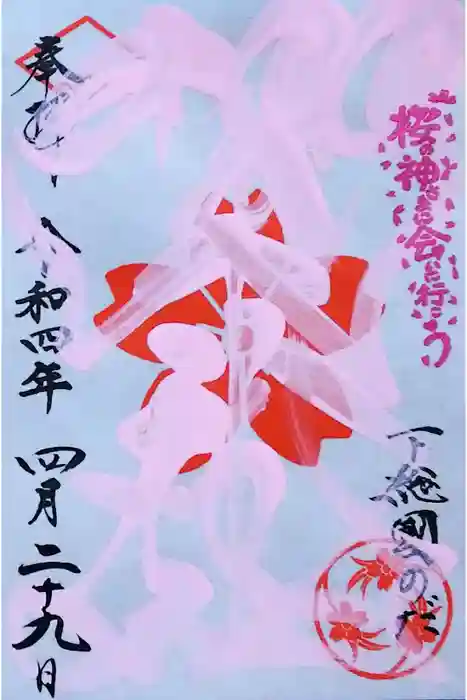 桜の神さまに会いに行こう
下総国のだ
奉拝 令和四年 四月二十九日